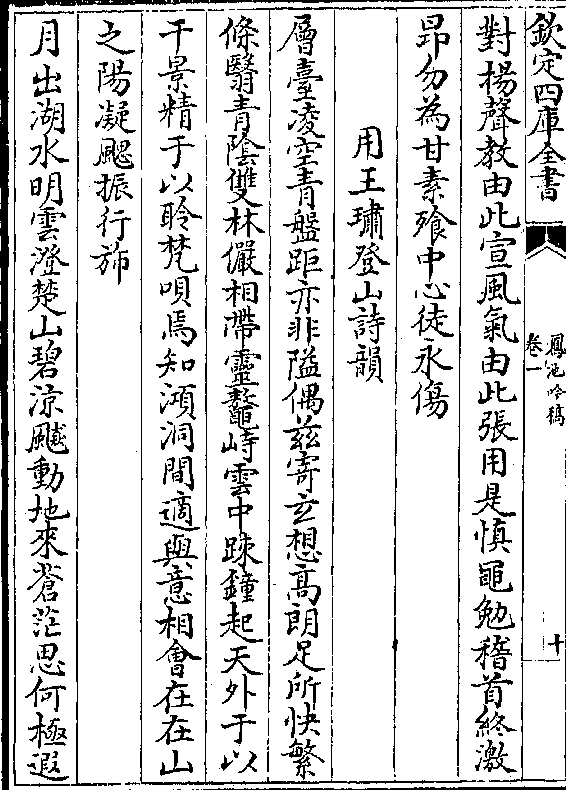 欽定四庫全書
鳳池吟稿
卷一
十
對揚聲教由此宣風氣由此張用是慎黽勉稽首終激
昻勿為甘素飱中心徒永傷
用王璛登山詩韻
層臺凌空青盤距亦非隘偶兹寄玄想高朗足所快繁
條翳青陰雙林儼相帶靈鼇峙雲中踈鐘起天外于以
干景精于以聆梵唄焉知澒洞間適與意相會在在山
之陽凝颸振行斾
月出湖水明雲澄楚山碧涼飈動地來蒼茫思何極遐